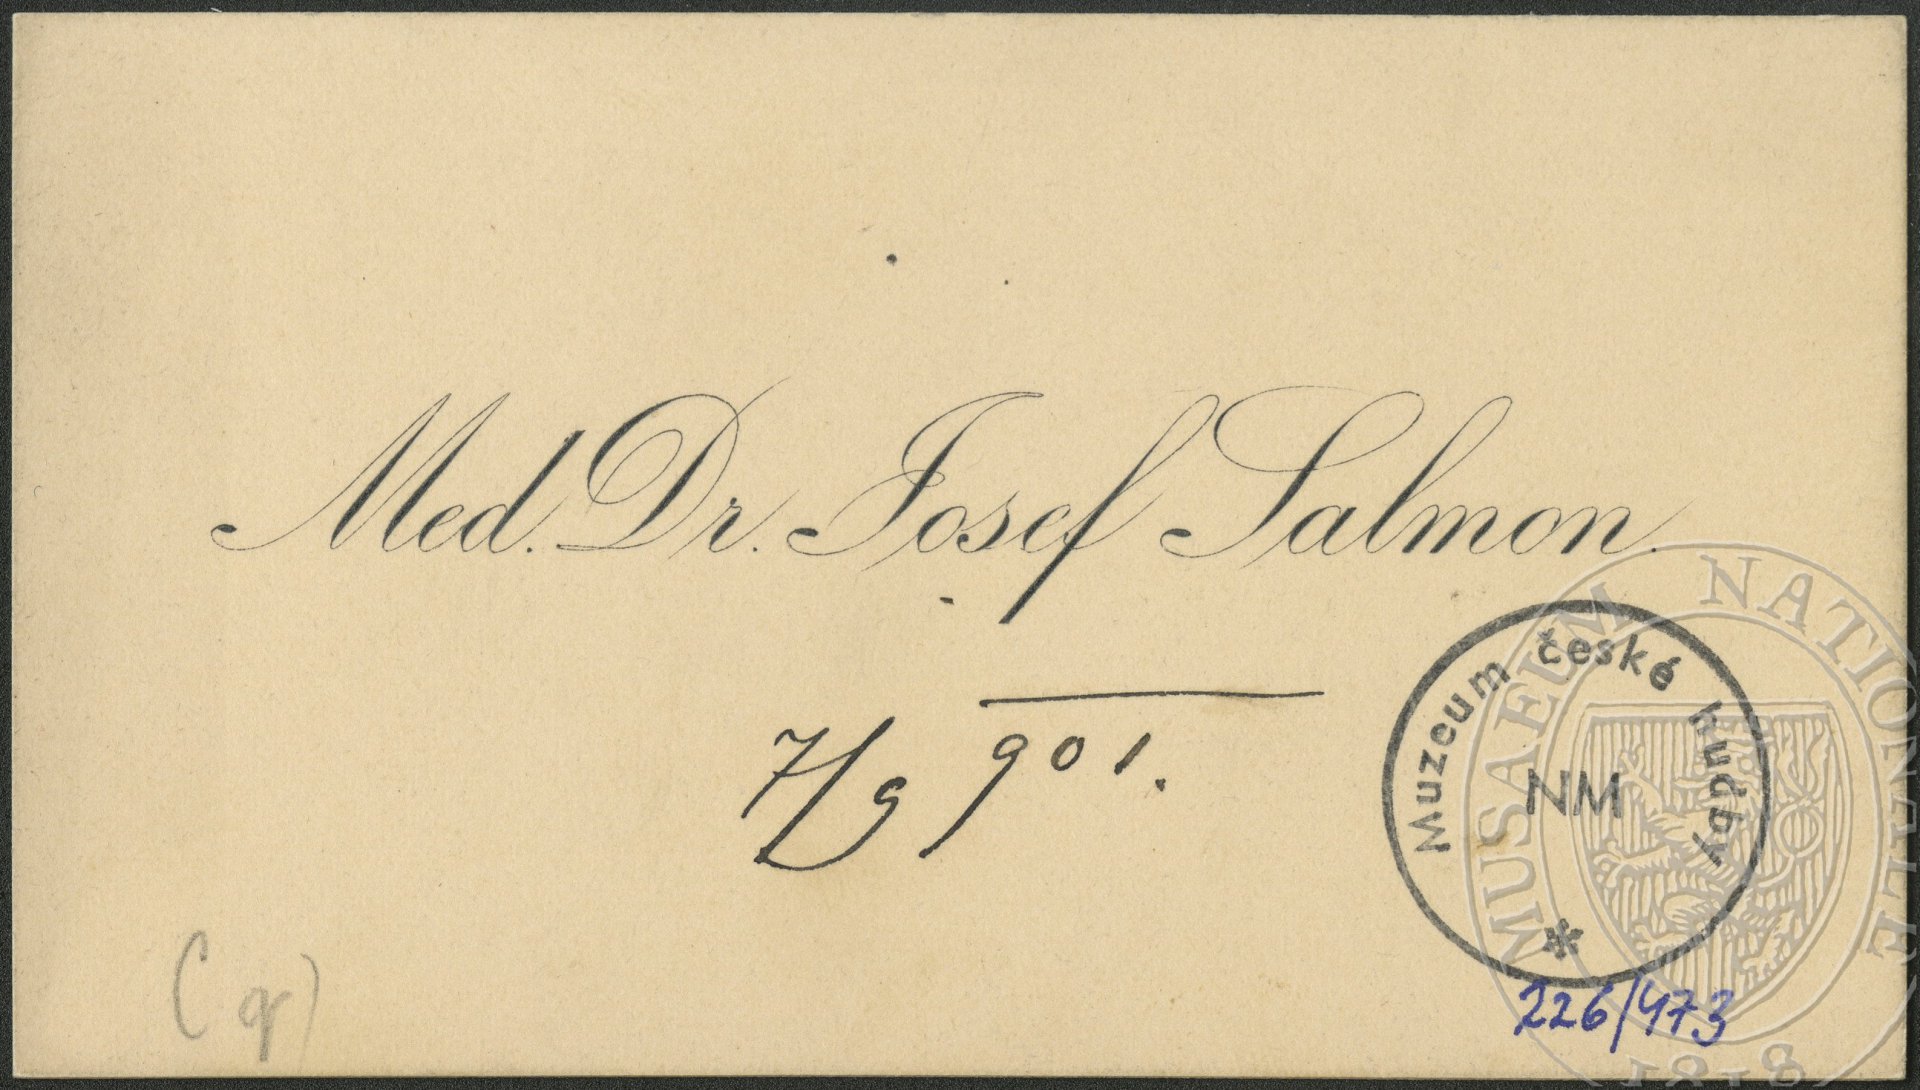 Med. Dr. Josef Salmon.
7/9 901.
Muzeum české hudby
NM
*
226/473
MUSAEUM NATIONALE
1818